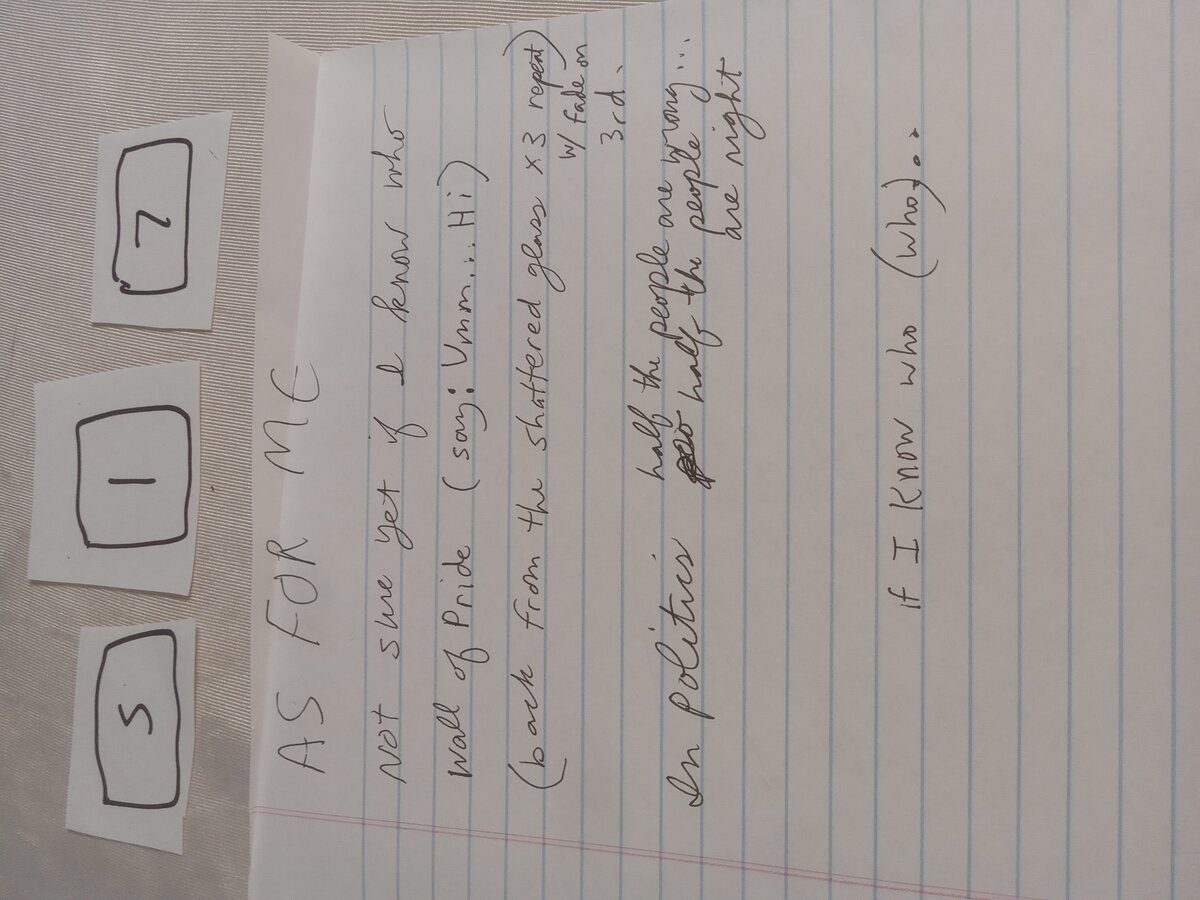 5 1 7
AS FOR ME
Not sure yet if I know who
Wall of Pride (say: Ummm... Hi)
(back from the shattered glass x3 repeat)
w/ fade on
3rd.
In Politics half the people are wrong...
half the people
are right
if I know who (who)..